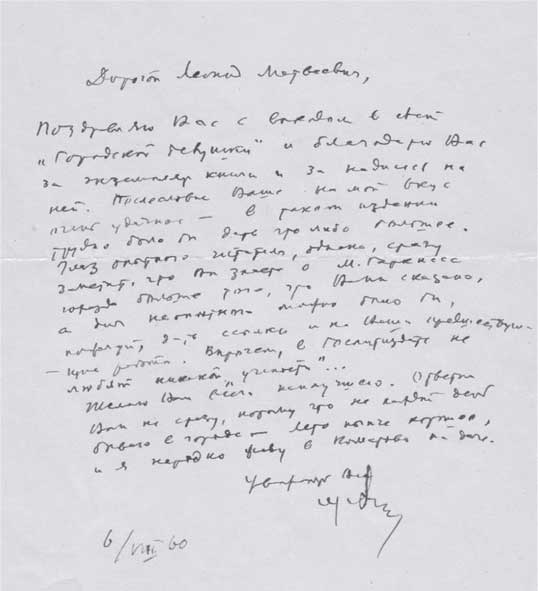 Дорогой Леонид Матвеевич,
Поздравляю Вас с выходом в свет
„Городской девушки" и благодарю Вас
за экземпляр книги и за надпись на
ней. Послесловие Ваше на мой вкус
очень удачное — в таком издании
трудно было бы дать что либо большее.
Глаз опытного читателя, однако, сразу
заметит, что Вы знаете о М. Гаркнесс
гораздо больше того, что Вами сказано,
а для неопытного можно было бы,
пожалуй, дать ссылки и на Ваши предшествую-
— щие работы. Впрочем, в Гослитиздате не
любят никакой „учености"...
Желаю Вам всего наилучшего. Ответил
Вам не сразу, потому что не каждый день
бываю в городе — лето нынче хорошее,
и я нередко живу в Комарово на даче.
Уважающий Вас
6/VIII 60